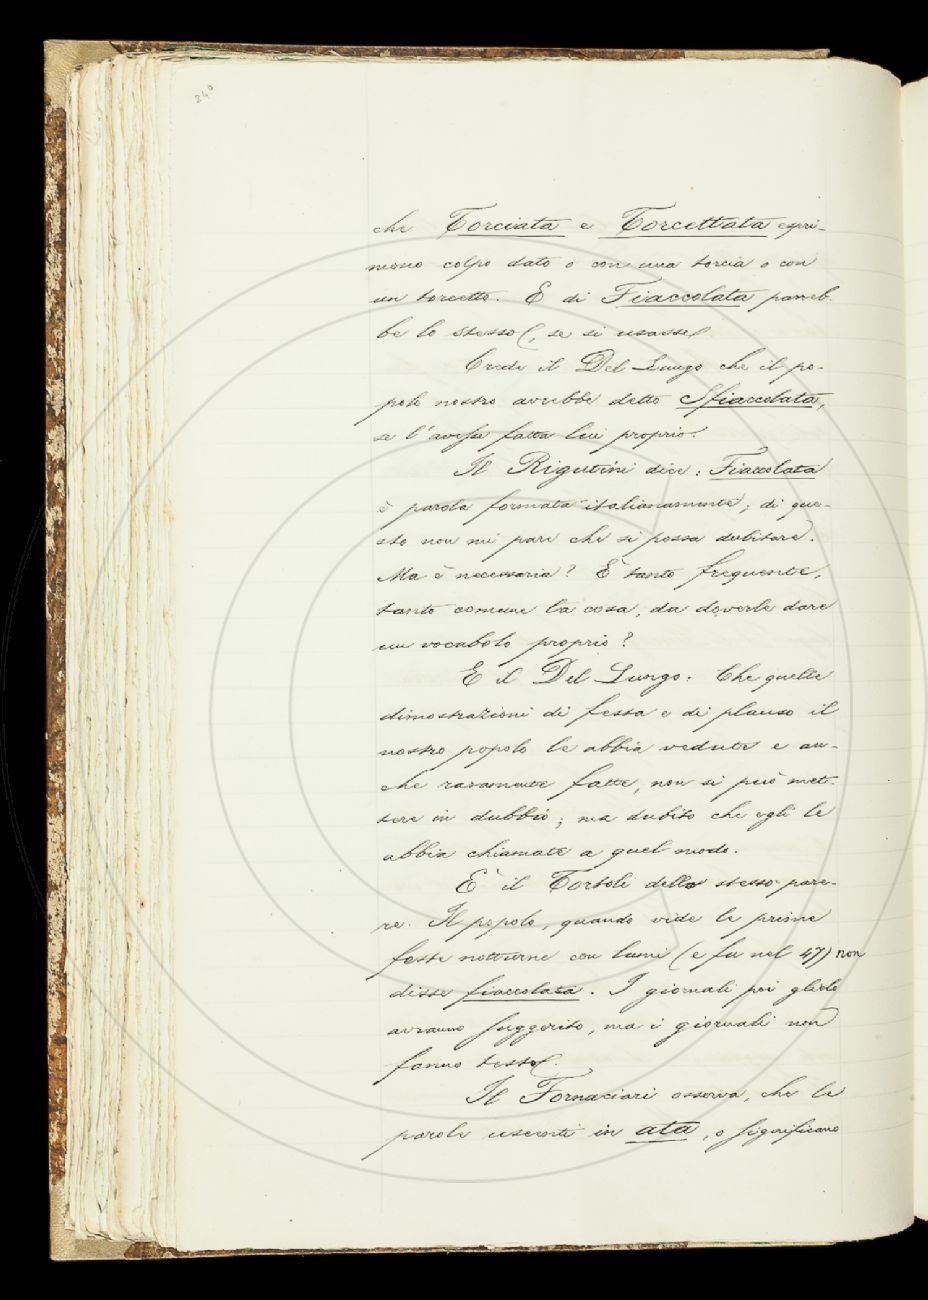 240
che Torciata e Torcettata espri-
mono colpo dato o con una torcia o con
un torcetto. E di Fiaccolata parreb-
be lo stesso, se si usasse.
Crede il Del Lungo che il po-
polo nostro avrebbe detto Sfiaccolata,
se l'avesse fatta lui proprio.
Il Rigutini dice: Fiaccolata
è parola formata italianamente; di que-
sto non mi pare che si possa dubitare.
Ma è necessaria? È tanto frequente,
tanto comune la cosa, da doverle dare
un vocabolo proprio?
E il Del Lungo: Che quelle
dimostrazioni di festa e di plauso il
nostro popolo le abbia vedute e an-
che raramente fatte, non si può met-
tere in dubbio; ma dubito che egli le
abbia chiamate a quel modo.
È il Tortoli dello stesso pare-
re. Il popolo, quando vide le prime
feste notturne con lumi (e fu nel 47) non
disse fiaccolata. I giornali poi glielo
avranno suggerito, ma i giornali non
fanno testo.
Il Fornaciari osserva, che le
parole uscenti in ata, o significano